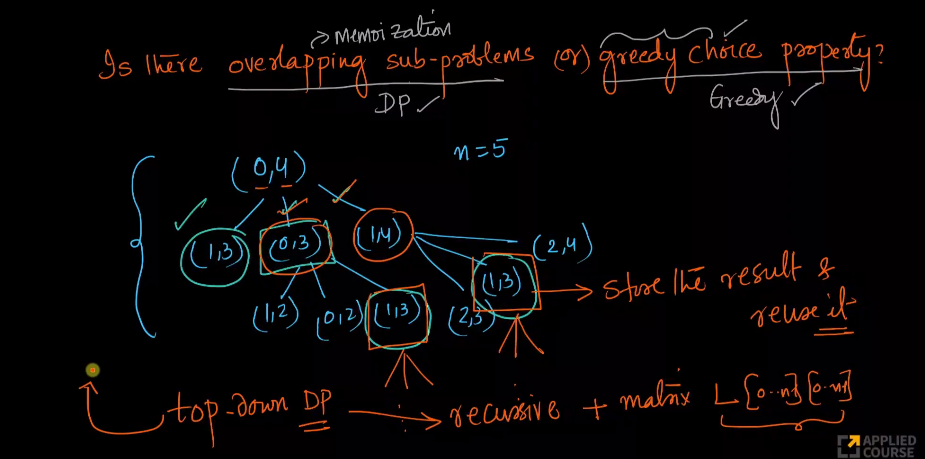 → Memoization
Is there overlapping sub-problems (or) greedy choice property?
DP ✓
Greedy ✓
n=5
(0,4)
(1,3) (0,3) (1,4) (2,4)
(1,3) → store the result &
(1,2) (0,2) (1,3) (2,3) reuse it
top-down DP → recursive + matrix L[0..n-1][0..n-1]
APPLIED
COURSE